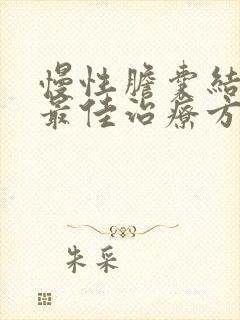 慢性膽囊結
最佳治療方
朱采